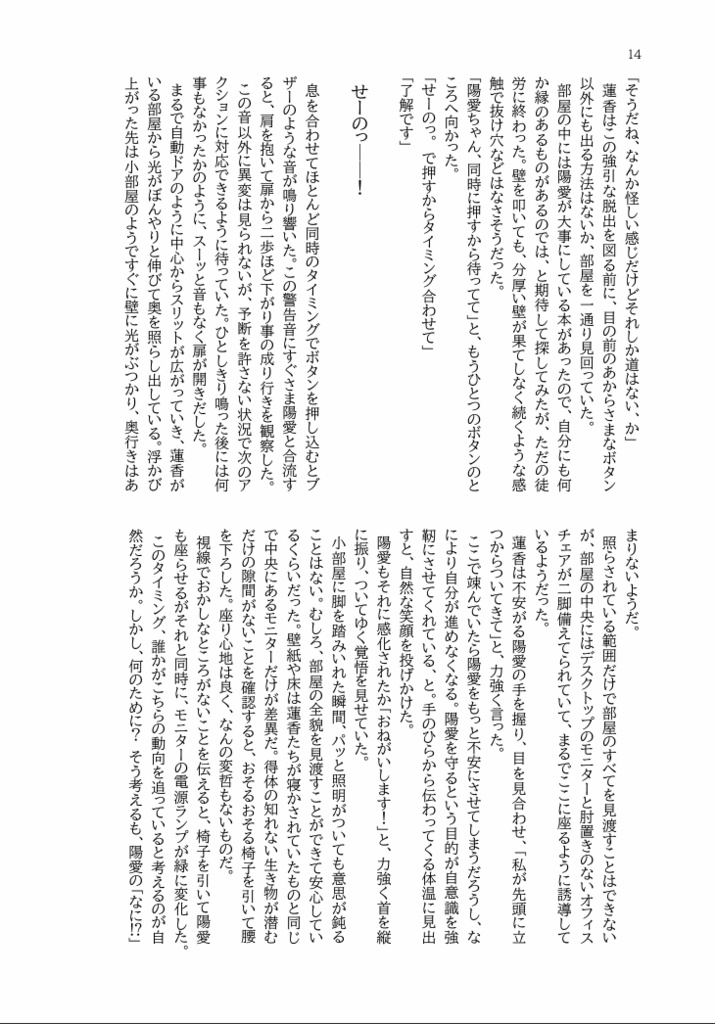 14
「そうだね、なんか怪しい感じだけどそれしか道はない、か」
蓮香はこの強引な脱出を図る前に、目の前のあからさまなボタン
以外にも出る方法はないか、部屋を一通り見回っていた。
部屋の中には陽愛が大事にしている本があったので、自分にも何
か縁のあるものがあるのでは、と期待して探してみたが、ただの徒
労に終わった。壁を叩いても、分厚い壁が果てしなく続くような感
触で抜け穴などはなさそうだった。
「陽愛ちゃん、同時に押すから待ってて」と、もうひとつのボタンのと
ころへ向かった。
「せーのっ。で押すからタイミング合わせて」
「了解です」
せーのっ――！
息を合わせてほとんど同時のタイミングでボタンを押し込むとブ
ザーのような音が鳴り響いた。この警告音にすぐさま陽愛と合流す
ると、肩を抱いて扉から二歩ほど下がり事の成り行きを観察した。
この音以外に異変は見られないが、予断を許さない状況で次のア
クションに対応できるように待っていた。ひとしきり鳴った後には何
事もなかったかのように、スーッと音もなく扉が開きだした。
まるで自動ドアのように中心からスリットが広がっていき、蓮香が
いる部屋から光がぼんやりと伸びて奥を照らし出している。浮かび
上がった先は小部屋のようですぐに壁に光がぶつかり、奥行きはあ
まりないようだ。
照らされている範囲だけで部屋のすべてを見渡すことはできない
が、部屋の中央にはデスクトップのモニターと肘置きのないオフィス
チェアが二脚備えてられていて、まるでここに座るように誘導して
いるようだった。
蓮香は不安がる陽愛の手を握り、目を見合わせ、「私が先頭に立
つからついてきて」と、力強く言った。
ここで竦んでいたら陽愛をもっと不安にさせてしまうだろうし、な
により自分が進めなくなる。陽愛を守るという目的が自意識を強
靭にさせてくれている、と。手のひらから伝わってくる体温に見出
すと、自然な笑顔を投げかけた。
陽愛もそれに感化されたか「おねがいします！」と、力強く首を縦
に振り、ついてゆく覚悟を見せていた。
小部屋に脚を踏みいれた瞬間、パッと照明がついても意思が鈍る
ことはない。むしろ、部屋の全貌を見渡すことができて安心してい
るくらいだった。壁紙や床は蓮香たちが寝かされていたものと同じ
で中央にあるモニターだけが差異だ。得体の知れない生き物が潜む
だけの隙間がないことを確認すると、おそるおそる椅子を引いて腰
を下ろした。座り心地は良く、なんの変哲もないものだ。
視線でおかしなところがないことを伝えると、椅子を引いて陽愛
も座らせるがそれと同時に、モニターの電源ランプが緑に変化した。
このタイミング、誰かがこちらの動向を追っていると考えるのが自
然だろうか。しかし、何のために？ そう考えるも、陽愛の「なに!?」